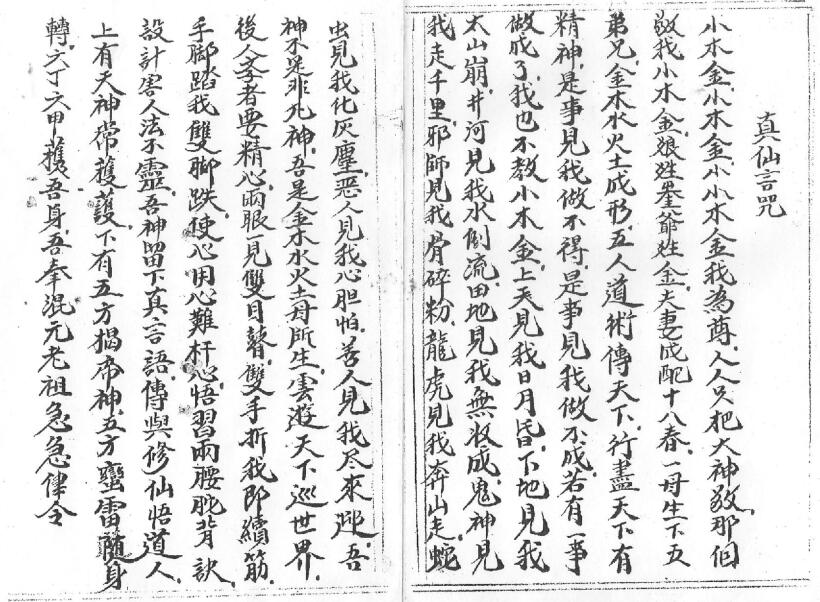 真仙言咒
小木金小木金小小木金我為尊人人只把大神敬那個
敬我小木金娘姓姜爺姓金夫妻成配十八春一母生下五
弟兄金木水火土成形五人道術傳天下行盡天下有
精神是事見我做不得是事見我做不成若有一事
做成了我也不教小木金上天見我日月昏下地見我
太山崩井河見我水倒流田地見我無收成鬼神見
我走千里邪師見我骨碎粉龍虎見我奔山走蛇
虫見我化灰塵惡人見我心胆怕善人見我尽來迎吾
神不是非凡神吾是金木水火土母所生雲遊天下巡世界
後人孝者要精心兩眼一見雙目瞽雙手折我即續筋
手脚踏我雙脚跌使心用心難杆心悟習兩腰脫背訣
設計害人法不靈吾神留下真言語傳與修仙悟道人
上有天神常護護下有五方揭帝神五方蠻雷隨身
轉六丁六甲護吾身吾奉混元老祖急急律令